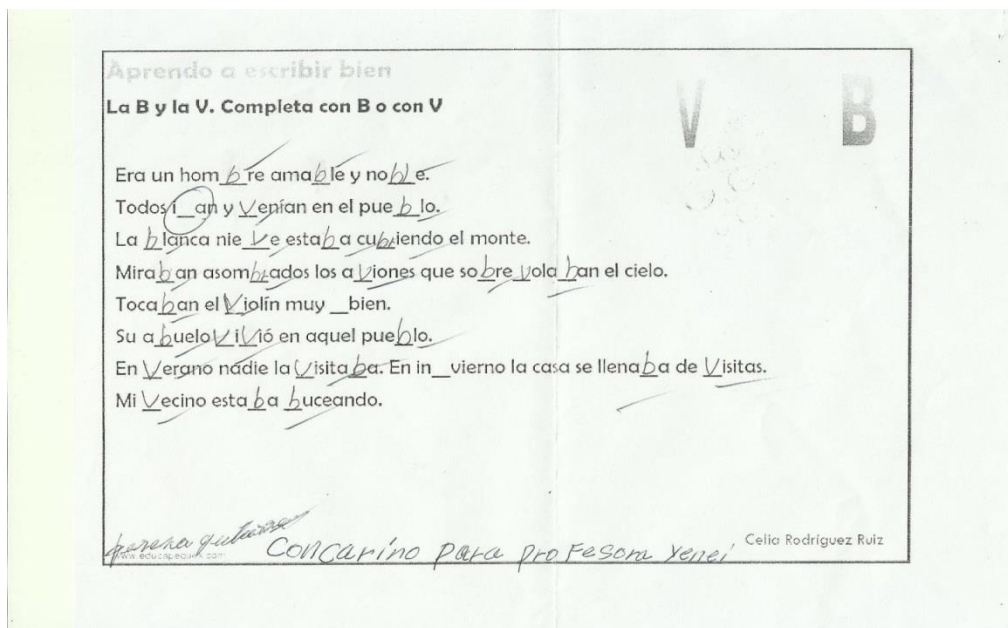 Aprendo a escribir bien
La B y la V. Completa con B o con V
V B
Era un hombre amable y noble.
Todos i_an y Venían en el pueblo.
La blanca nieVe estaba cubriendo el monte.
Miraban asombrados los aViones que sobrevolaban el cielo.
Tocaban el Violín muy _bien.
Su abuelo ViVió en aquel pueblo.
En Verano nadie la Visitaba. En in_vierno la casa se llenaba de Visitas.
Mi Vecino estaba buceando.
www.educapeques.com
Concarino para profesora Yenei
Celia Rodríguez Ruiz